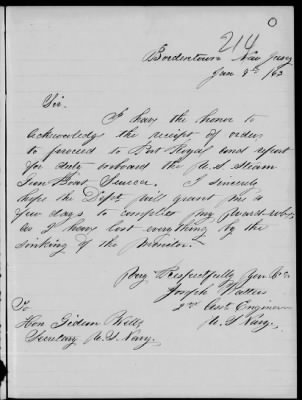 O
214
Bordentown New Jersey
Jan 8th 1863
Sir.
I have the honor to
acknowledge the receipt of orders
to proceed to Port Royal and report
for duty onboard the U.S. Steam
Gun Boat Seneca. I sincerely
hope the Dept will grant me a
few days to complete my Ward-robe
as I have lost everything by the
sinking of the Monitor.
Very Respectfully
Joseph Watters
2nd Asst. Engineer
U.S. Navy.
To
Hon Gideon Wells
Secretary U.S. Navy.